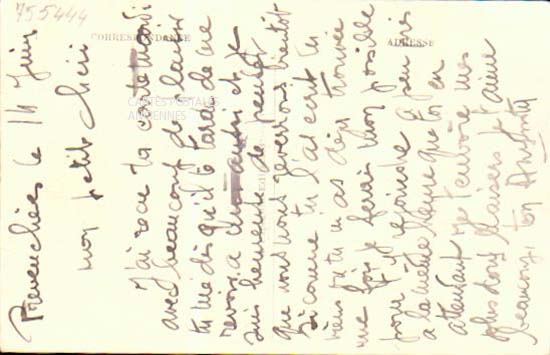 755444
CORRESPONDANCE
ADRESSE
CARTES POSTALES
ANCIENNES
le 14 Juin
mon petit chéri
J'ai reçu ta carte mardi
avec beaucoup de plaisir
tu me dis qu'il te tarde de me
revoir a moi aussi et je
suis heureuse de penser
que nous nous reverrons bientôt
Si comme tu l'as écrit tu
viens tu m'as déjà trouvée
une fois je ferais mon possible
pour rejoindre a peu près
a la même heure que toi en
attendant je t'envoie mes
plus doux baisers je t'aime
beaucoup ton